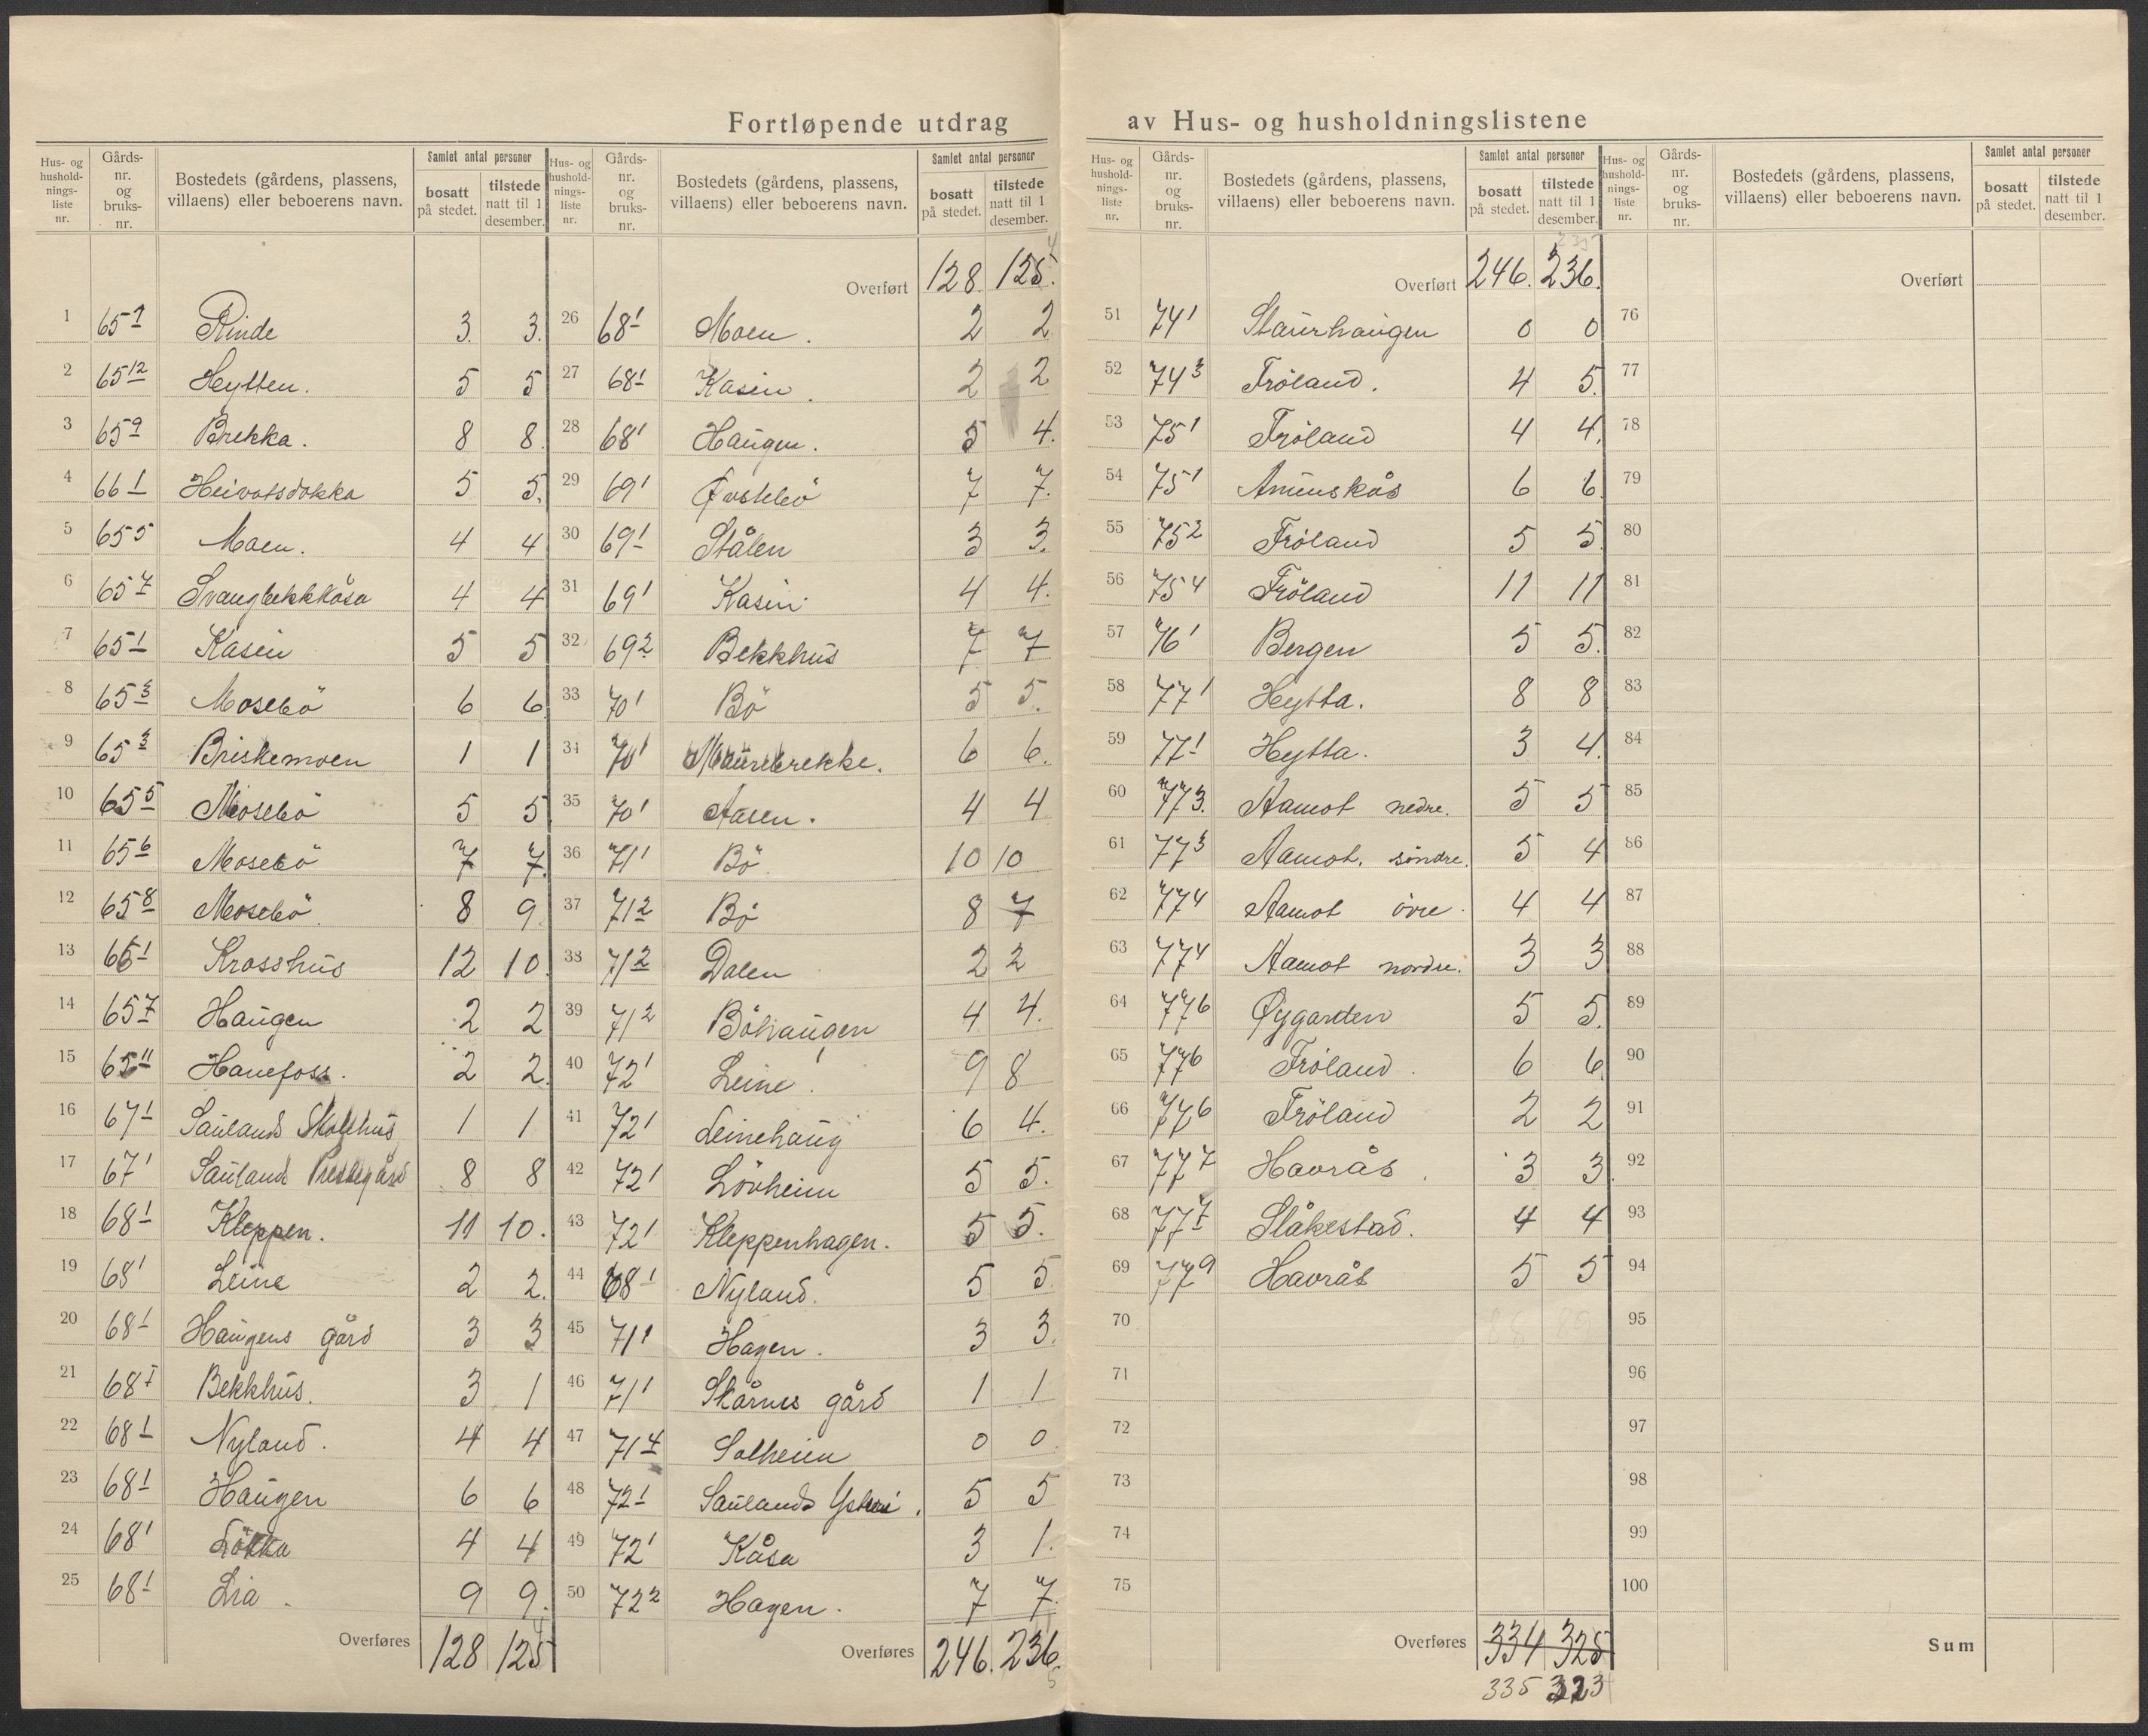 Fortløpende utdrag av Hus- og husholdningslistene
Hus- og husholdnings-liste nr. | Gårds-nr. og bruks-nr. | Bostedets (gårdens, plassens, villaens) eller beboerens navn. | Samlet antal personer: bosatt på stedet. | tilstede natt til 1 desember.
1 65 1 Rinde 3 3
2 65 12 Heytten. 5 5
3 65 9 Brekka. 8 8
4 66 1 Heivotsdokka 5 5
5 65 5 Moen. 4 4
6 65 7 Svangbekkkåsa 4 4
7 65 1 Kåsin 5 5
8 65 3 Mosebö 6 6
9 65 3 Briskemoen 1 1
10 65 5 Mosebö 5 5
11 65 6 Mosebö 7 7
12 65 8 Mosebö 8 9
13 66 1 Krosshus 12 10
14 65 7 Haugen 2 2
15 65 11 Hanefoss. 2 2
16 67 1 Saulands Skolehus 1 1
17 67 1 Sauland Prestegård 8 8
18 68 1 Kleppen. 11 10.
19 68 1 Leine 2 2.
20 68 1 Haugens gård 3 3
21 68 1 Bekkhus. 3 1
22 68 1 Nyland. 4 4
23 68 1 Haugen 6 6
24 68 1 Lökka 4 4
25 68 1 Lia. 9 9.
Overføres 128 125
Hus- og husholdnings-liste nr. | Gårds-nr. og bruks-nr. | Bostedets (gårdens, plassens, villaens) eller beboerens navn. | Samlet antal personer: bosatt på stedet. | tilstede natt til 1 desember.
Overført 128 125. 4
26 68 1 Moen. 2 2
27 68 1 Kåsin. 2 2
28 68 1 Haugen. 5 4.
29 69 1 Øvstebö 7 7.
30 69 1 Stålen 3 3.
31 69 1 Kåsin 4 4.
32 69 2 Bekkhus 7 7
33 70 1 Bö 5 5.
34 70 1 Maurebrekke. 6 6.
35 70 1 Aasen. 4 4
36 71 1 Bö 10 10
37 71 2 Bö 8 7
38 71 2 Dalen 2 2
39 71 2 Böhaugen 4 4.
40 72 1 Leine 9 8
41 72 1 Leinehaug 6 4.
42 72 1 Lövheim 5 5.
43 72 1 Kleppenhagen. 5 5.
44 68 1 Nyland. 5 5
45 71 1 Hagen. 3 3.
46 71 1 Skårnes gård 1 1
47 71 4 Solheim 0 0
48 72 1 Saulands Ysteri. 5 5
49 72 1 Kåsa 3 1.
50 72 2 Hagen. 7 7.
Overføres 246. 236. 5
Hus- og husholdnings-liste nr. | Gårds-nr. og bruks-nr. | Bostedets (gårdens, plassens, villaens) eller beboerens navn. | Samlet antal personer: bosatt på stedet. | tilstede natt til 1 desember.
235
Overført 246. 236.
51 74 1 Staurhaugen 0 0
52 74 3 Fröland. 4 5.
53 75 1 Fröland 4 4.
54 75 1 6 6
55 75 2 Fröland 5 5
56 75 4 Fröland 11 11
57 76 1 Bergen 5 5.
58 77 1 Heytta. 8 8
59 77 1 Heytta. 3 4
60 77 3. Aamot nedre. 5 5
61 77 3 Aamot. söndre. 5 4
62 77 4 Aamot övre. 4 4
63 77 4 Aamot nordre. 3 3
64 77 6 Øygarden 5 5.
65 77 6 Fröland. 6 6
66 77 6 Fröland 2 2
67 77 7 Havrås 3 3
68 77 7 Slåkestad. 4 4
69 77 9 Havrås 5 5
70 88 89
71
72
73
74
75
Overføres 334 325
335 323
Hus- og husholdnings-liste nr. | Gårds-nr. og bruks-nr. | Bostedets (gårdens, plassens, villaens) eller beboerens navn. | Samlet antal personer: bosatt på stedet. | tilstede natt til 1 desember.
Overført
76
77
78
79
80
81
82
83
84
85
86
87
88
89
90
91
92
93
94
95
96
97
98
99
100
Sum